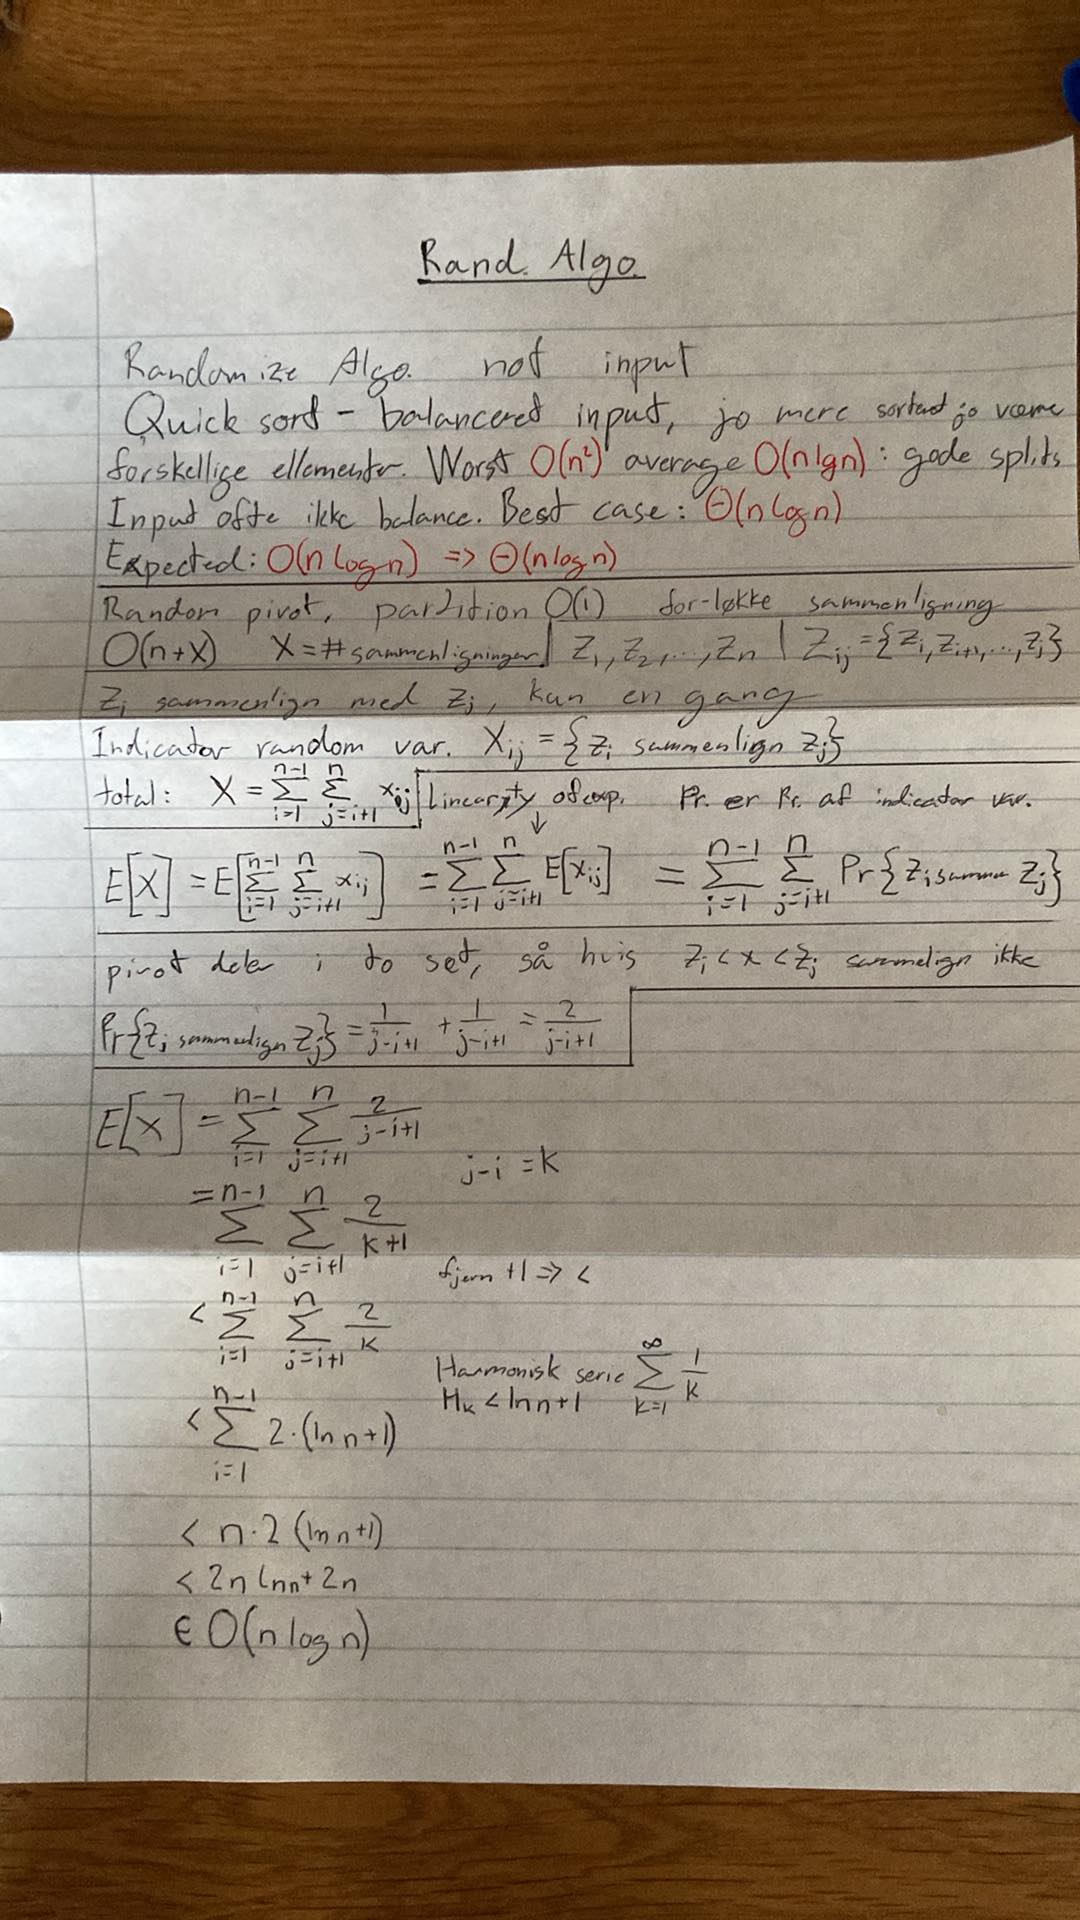 Rand. Algo.
Randomize Algo. not input
Quick sort - balanceret input, jo mere sorteret jo værre
forskellige ellementer. Worst O(n²) average O(n lg n): gode splits
Input ofte ikke balance. Best case: Θ(n log n)
Expected: O(n log n) => Θ(n log n)
Random pivot, partition O(1) for-løkke sammenligning
O(n+X) X = # sammenligninger | Z₁, Z₂, ..., Zn | Zij = {Zi, Zi+1, ..., Zj}
Zi sammenlign med Zj, kun en gang
Indicator random var. Xij = {Zi sammenlign Zj}
total: X = ∑_{i=1}^{n-1} ∑_{j=i+1}^{n} xij Linearity of exp. Pr. er Pr. af indicator var.
↓
E[X] = E[∑_{i=1}^{n-1} ∑_{j=i+1}^{n} xij] = ∑_{i=1}^{n-1} ∑_{j=i+1}^{n} E[xij] = ∑_{i=1}^{n-1} ∑_{j=i+1}^{n} Pr{Zi samme Zj}
pivot deler i to set, så hvis Zi < x < Zj sammelign ikke
Pr{Zi sammenlign Zj} = 1/(j-i+1) + 1/(j-i+1) = 2/(j-i+1)
E[X] = ∑_{i=1}^{n-1} ∑_{j=i+1}^{n} 2/(j-i+1)
j-i = k
= ∑_{i=1}^{n-1} ∑_{j=i+1}^{n} 2/(k+1)
fjern +1 => <
< ∑_{i=1}^{n-1} ∑_{j=i+1}^{n} 2/k
Harmonisk serie ∑_{k=1}^{∞} 1/k
Hk < ln n+1
< ∑_{i=1}^{n-1} 2·(ln n+1)
< n·2 (ln n+1)
< 2n ln n + 2n
∈ O(n log n)